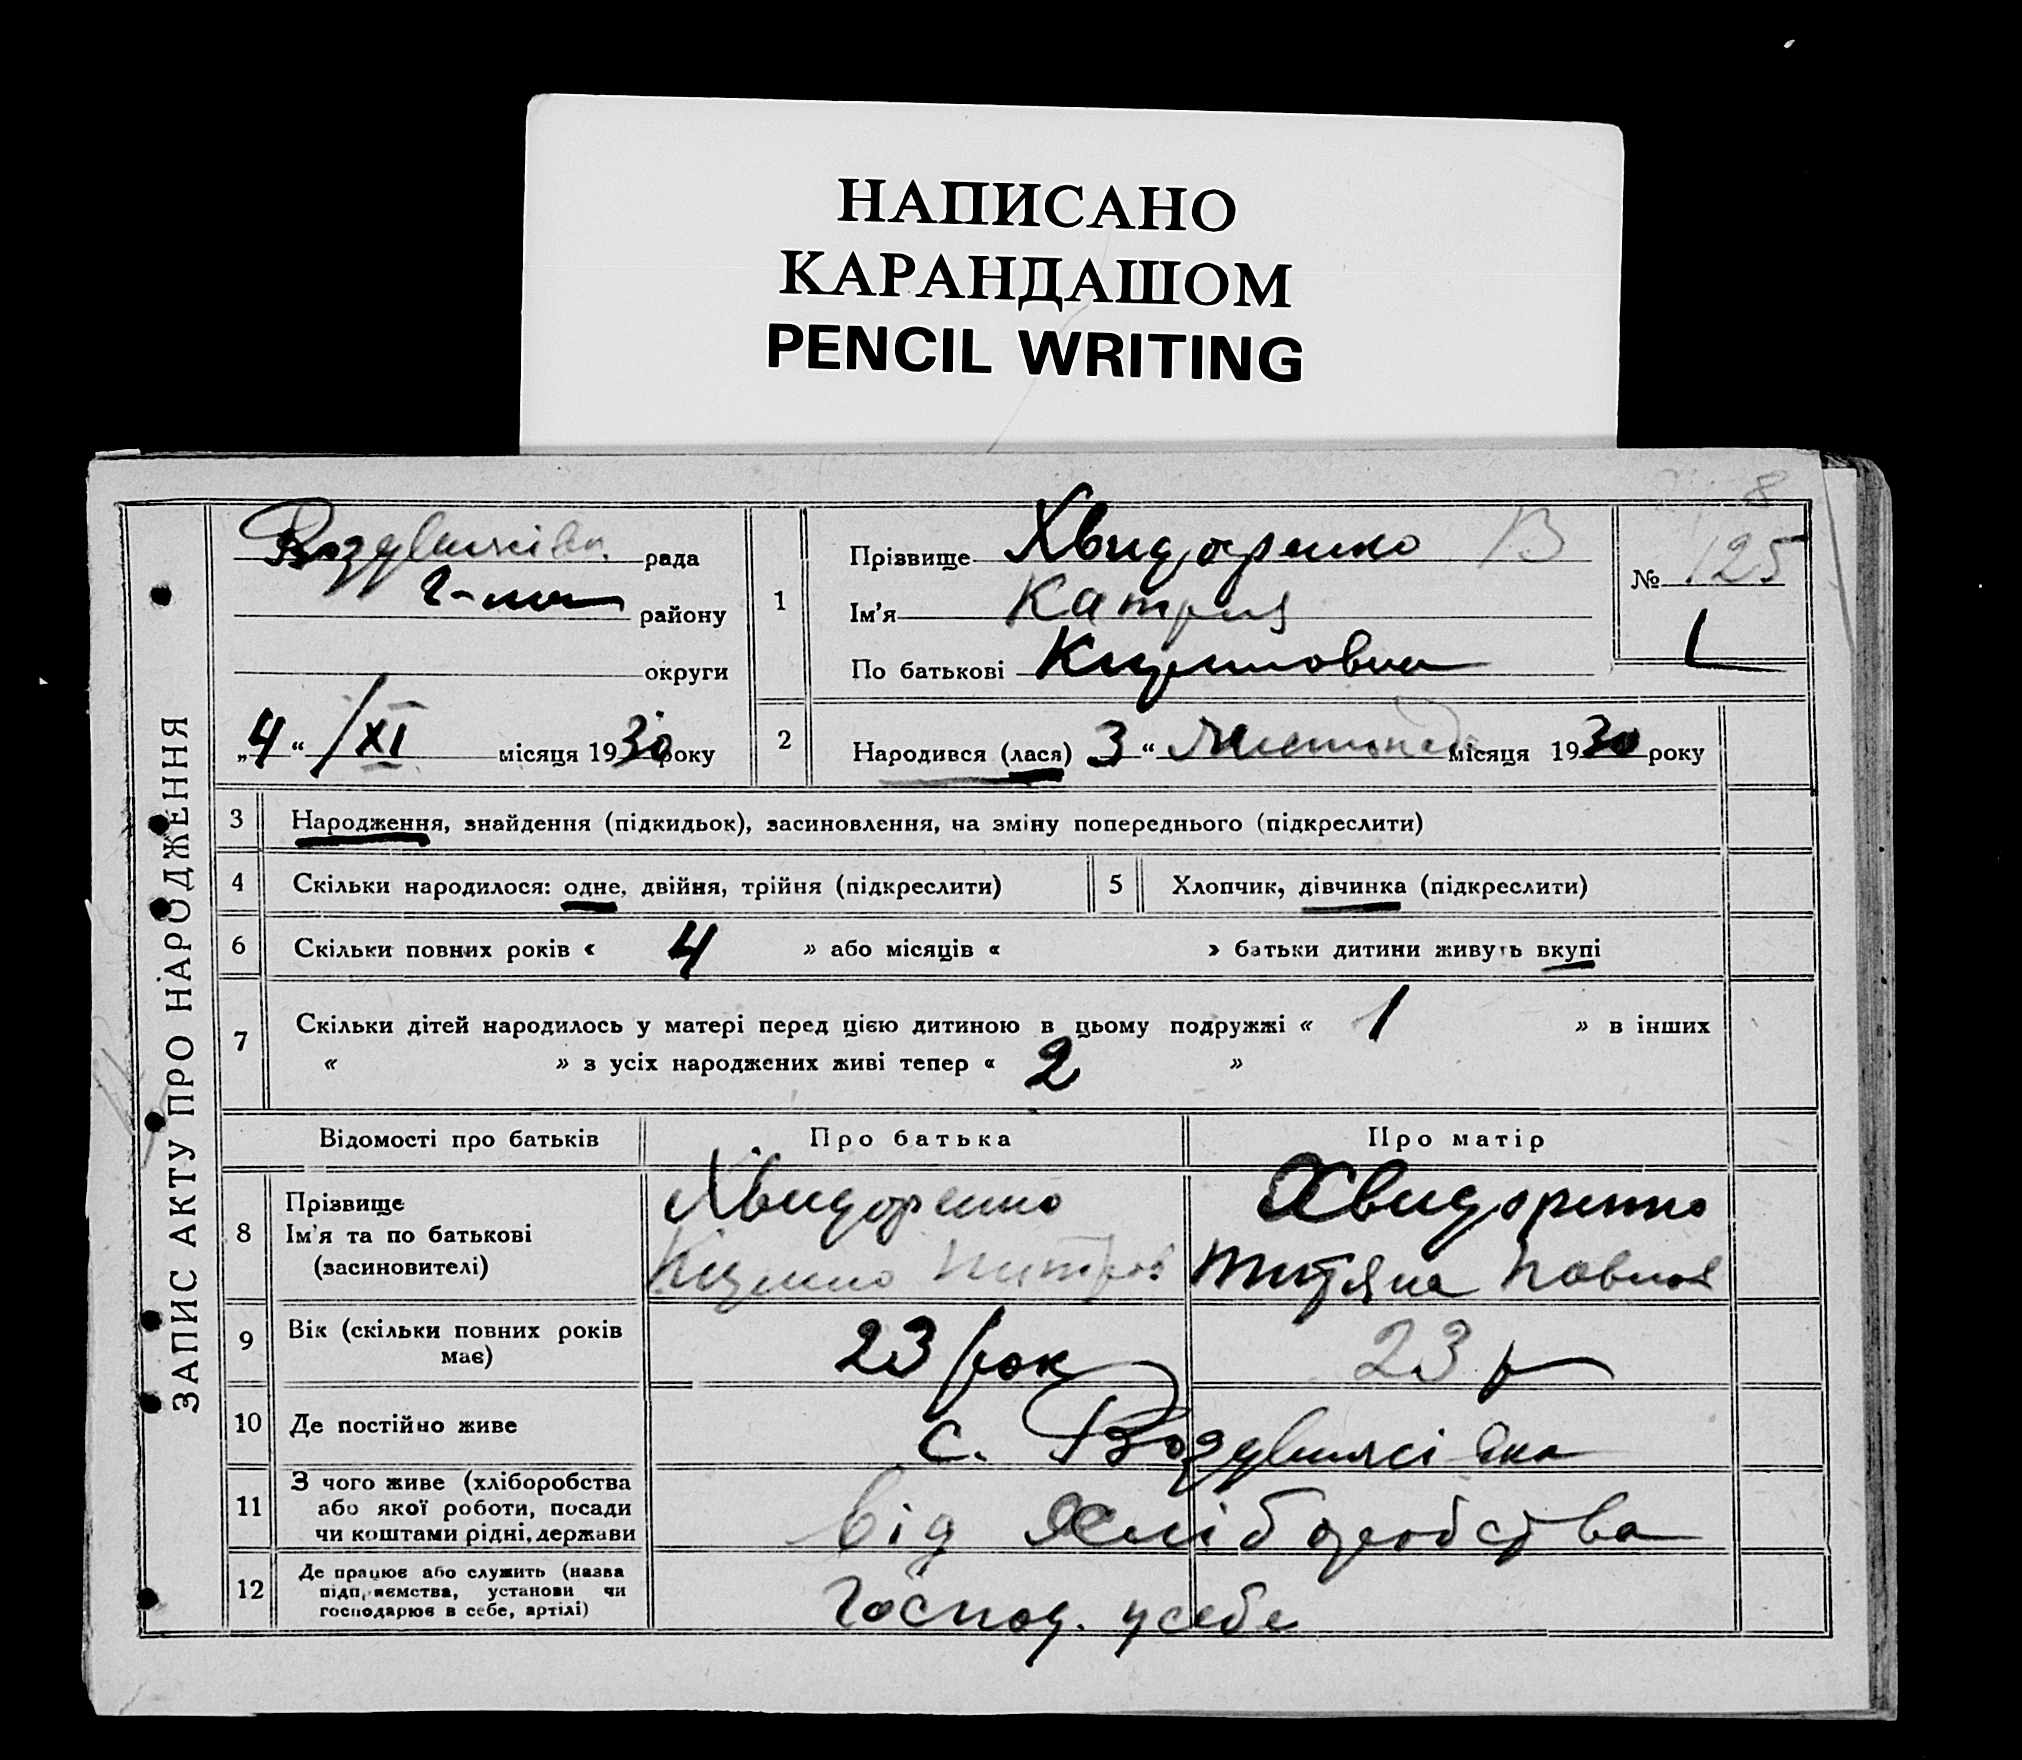 НАПИСАНО
КАРАНДАШОМ
PENCIL WRITING
ЗАПИС АКТУ ПРО НАРОДЖЕННЯ
рада
району
округи
„4“ /XI місяця 1930 року
1
Прізвище Хвидоренко В
Ім'я Катря
По батькові
№ 125
2
Народився (лася) 3 “ Листопад місяця 1930 року
3
Народження, знайдення (підкидьок), засиновлення, на зміну попереднього (підкреслити)
4
Скільки народилося: одне, двійня, трійня (підкреслити)
5
Хлопчик, дівчинка (підкреслити)
6
Скільки повних років « 4 » або місяців « » батьки дитини живуть вкупі
7
Скільки дітей народилось у матері перед цією дитиною в цьому подружжі « 1 » в інших
« » з усіх народжених живі тепер « 2 »
Відомості про батьків
Про батька
Про матір
8
Прізвище
Ім'я та по батькові
(засиновителі)
Хвидоренко
Хвидоренко
Павлов
9
Вік (скільки повних років
має)
23 рок
23 р
10
Де постійно живе
с. Воздвижівка
11
З чого живе (хліборобства
або якої роботи, посади
чи коштами рідні, держави
від хліборобства
12
Де працює або служить (назва
підприємства, установи чи
господарює в себе, артілі)
Господ. у себе